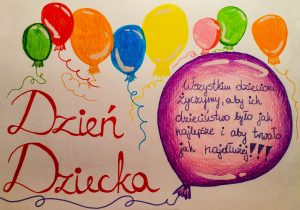 Dzień
Dziecka
Wszystkim dzieciom
życzymy, aby ich
dzieciństwo było jak
najlepsze i aby trwało
jak najdłużej!!!